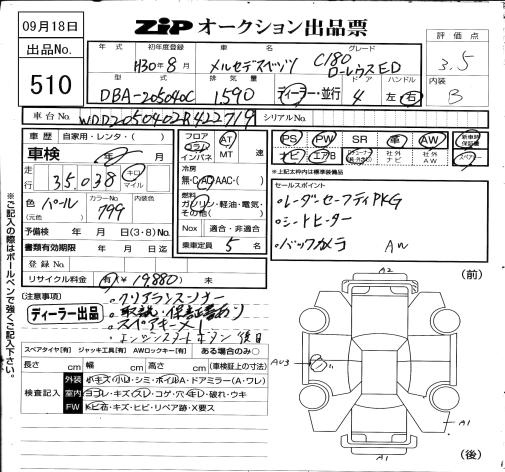 09月18日
ZIP オークション出品票
出品No.
510
評価点
3.5
内装
B
年式
初年度登録
車名
グレード
H30年8月
メルセデスベンツ
C180
ローレウスED
型式
排気量
ドア
ハンドル
DBA-205040C
1590
ディーラー・並行
4
左・右
車台No.
WDD2050402R422719
シリアルNo.
車歴
自家用・レンタ・( )
車検
年 月
走行
35,038
キロ
マイル
色
(元色)
パール
カラーNo.
799
内装色
予備検 年 月 日(3・8)No.
書類有効期限 年 月 日迄
登録No.
リサイクル料金
有 ¥19,880 未
フロア
コラム
インパネ
AT
MT
速
冷房
無・C・AC・AAC・( )
燃料
ガソリン・軽油・電気・
その他( )
Nox
適合・非適合
乗車定員 5 名
PS
PW
SR
革
AW
新車時保証書
ナビ
エアB
社外ナビ
社外AW
スペアキー
※上記太枠内は標準装備品
セールスポイント
・レーダーセーフティPKG
・シートヒーター
・バックカメラ AW
(注意事項)
ディーラー出品
・クリアランスソナー
・取説・保証書あり
・スペアキー×1
・エンジンスタートボタン 後日
スペアタイヤ[有]
ジャッキ工具[有]
AWロックキー[有]
ある場合のみ○
長さ cm
幅 cm
高さ cm
(車検証上の寸法)
検査記入
外装
小キズ・小凹・シミ・ボイルA・ドアミラー(A・ワレ)
室内
ヨゴレ・キズ・スレ・コゲ・穴・キレ・破れ・ウキ
FW
トビ石・キズ・ヒビ・リペア跡・X要ス
※ご記入の際はボールペンで強くご記入下さい。
(前)
A2
AU3
A1
A1
(後)